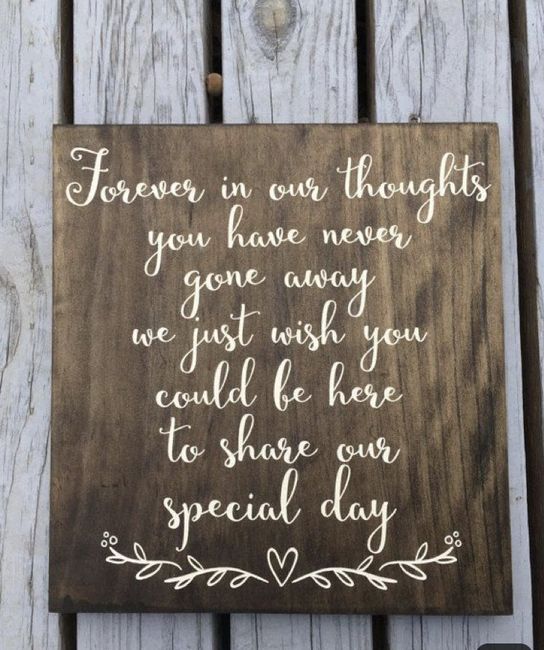 Forever in our thoughts
you have never
gone away
we just wish you
could be here
to share our
special day